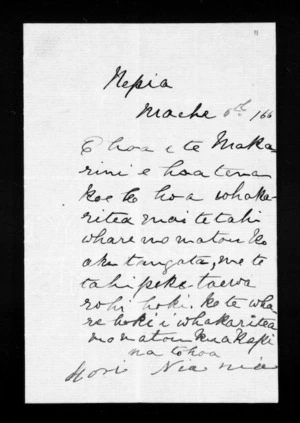 11
Nepia
Mache 6th /66
E hoa e te Maka-
rini e hoa tena
koe E hoa whaka-
ritea mai tetahi
whare mo matou ko
aku tangata, me te
tahi peke taewa
rohi hoki. ko te wha
re hoki i whakaritea
mo matou kua kapi
na to hoa
Hori Nia nia